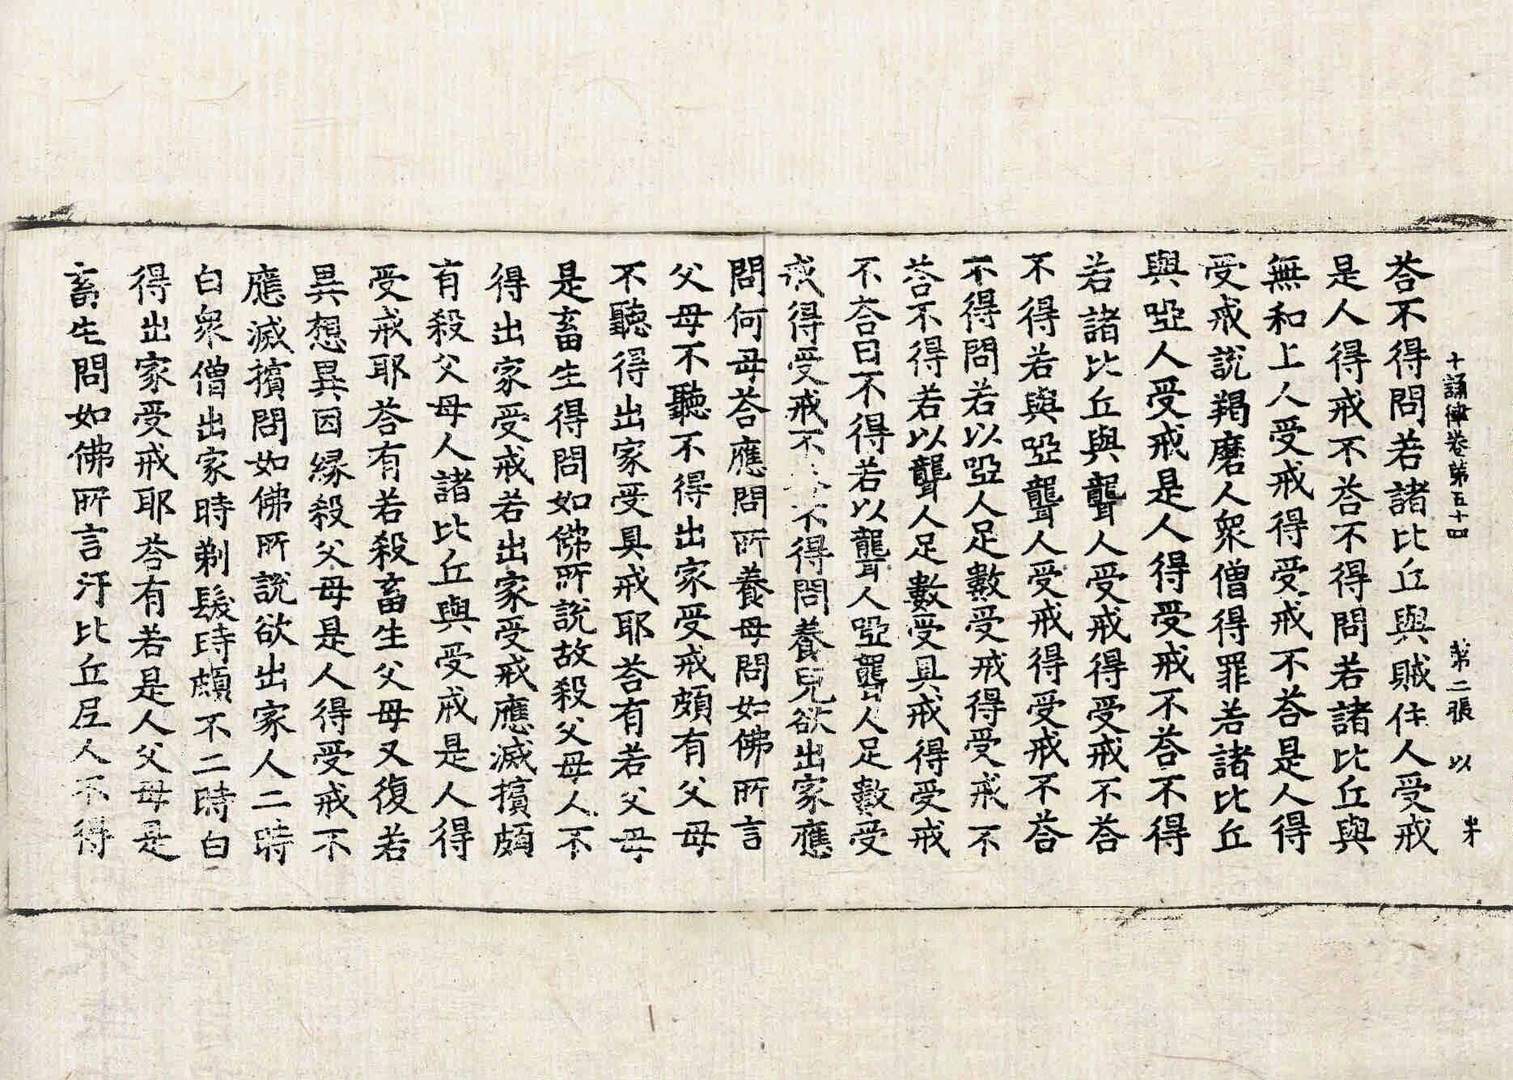 十誦律卷第五十四 第二張 以
荅不得問若諸比丘與賊住人受戒
是人得戒不荅不得問若諸比丘與
無和上人受戒得受戒不荅是人得
受戒說羯磨人衆僧得罪若諸比丘
與啞人受戒是人得受戒不荅不得
若諸比丘與聾人受戒得受戒不荅
不得若與啞聾人受戒得受戒不荅
不得問若以啞人足數受戒得受戒不
荅不得若以聾人足數受具戒得受戒
不荅曰不得若以聾人啞聾人足數受
戒得受戒不荅不得問養兒欲出家應
問何母荅應問所養母問如佛所言
父母不聽不得出家受戒頗有父母
不聽得出家受具戒耶荅有若父母
是畜生得問如佛所說故殺父母人不
得出家受戒若出家受戒應滅擯頗
有殺父母人諸比丘與受戒是人得
受戒耶荅有若殺畜生父母又復若
異想異因緣殺父母是人得受戒不
應滅擯問如佛所說欲出家人二時
白衆僧出家時剃髮時頗不二時白
得出家受戒耶荅有若是人父母是
畜生問如佛所言汙比丘尼人不得